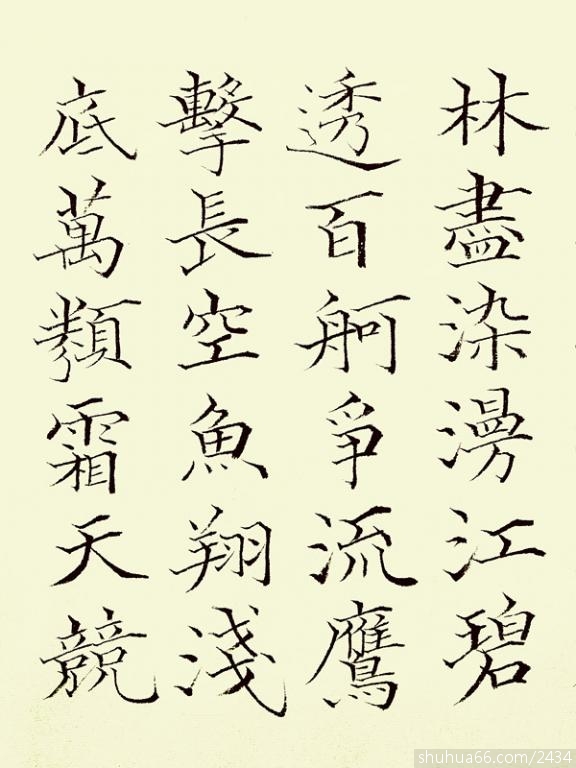 林盡染漫江碧
透百舸爭流鷹
擊長空魚翔淺
底萬類霜天競
shuhua66.com/2434